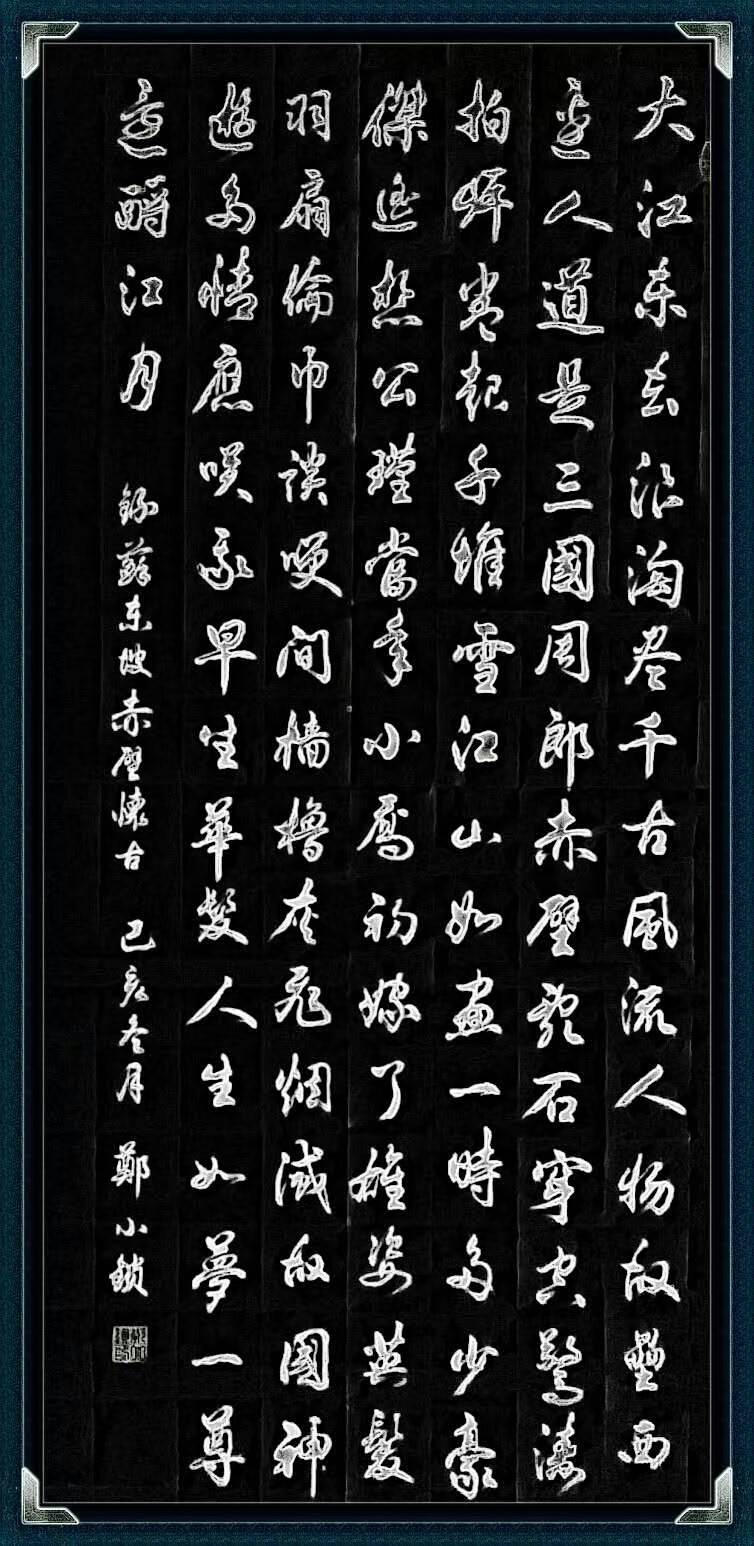 大江东去浪淘尽千古風流人物故壘西
邊人道是三國周郎赤壁亂石穿空驚濤
拍岸卷起千堆雪江山如畫一時多少豪
傑遥想公瑾當年小喬初嫁了雄姿英髮
羽扇倫巾談咲間檣櫓灰飛烟滅故國神
遊多情應咲我早生華髮人生如夢一尊
還酹江月 錄蘇东坡赤壁懷古 己亥冬月 鄭小鎖